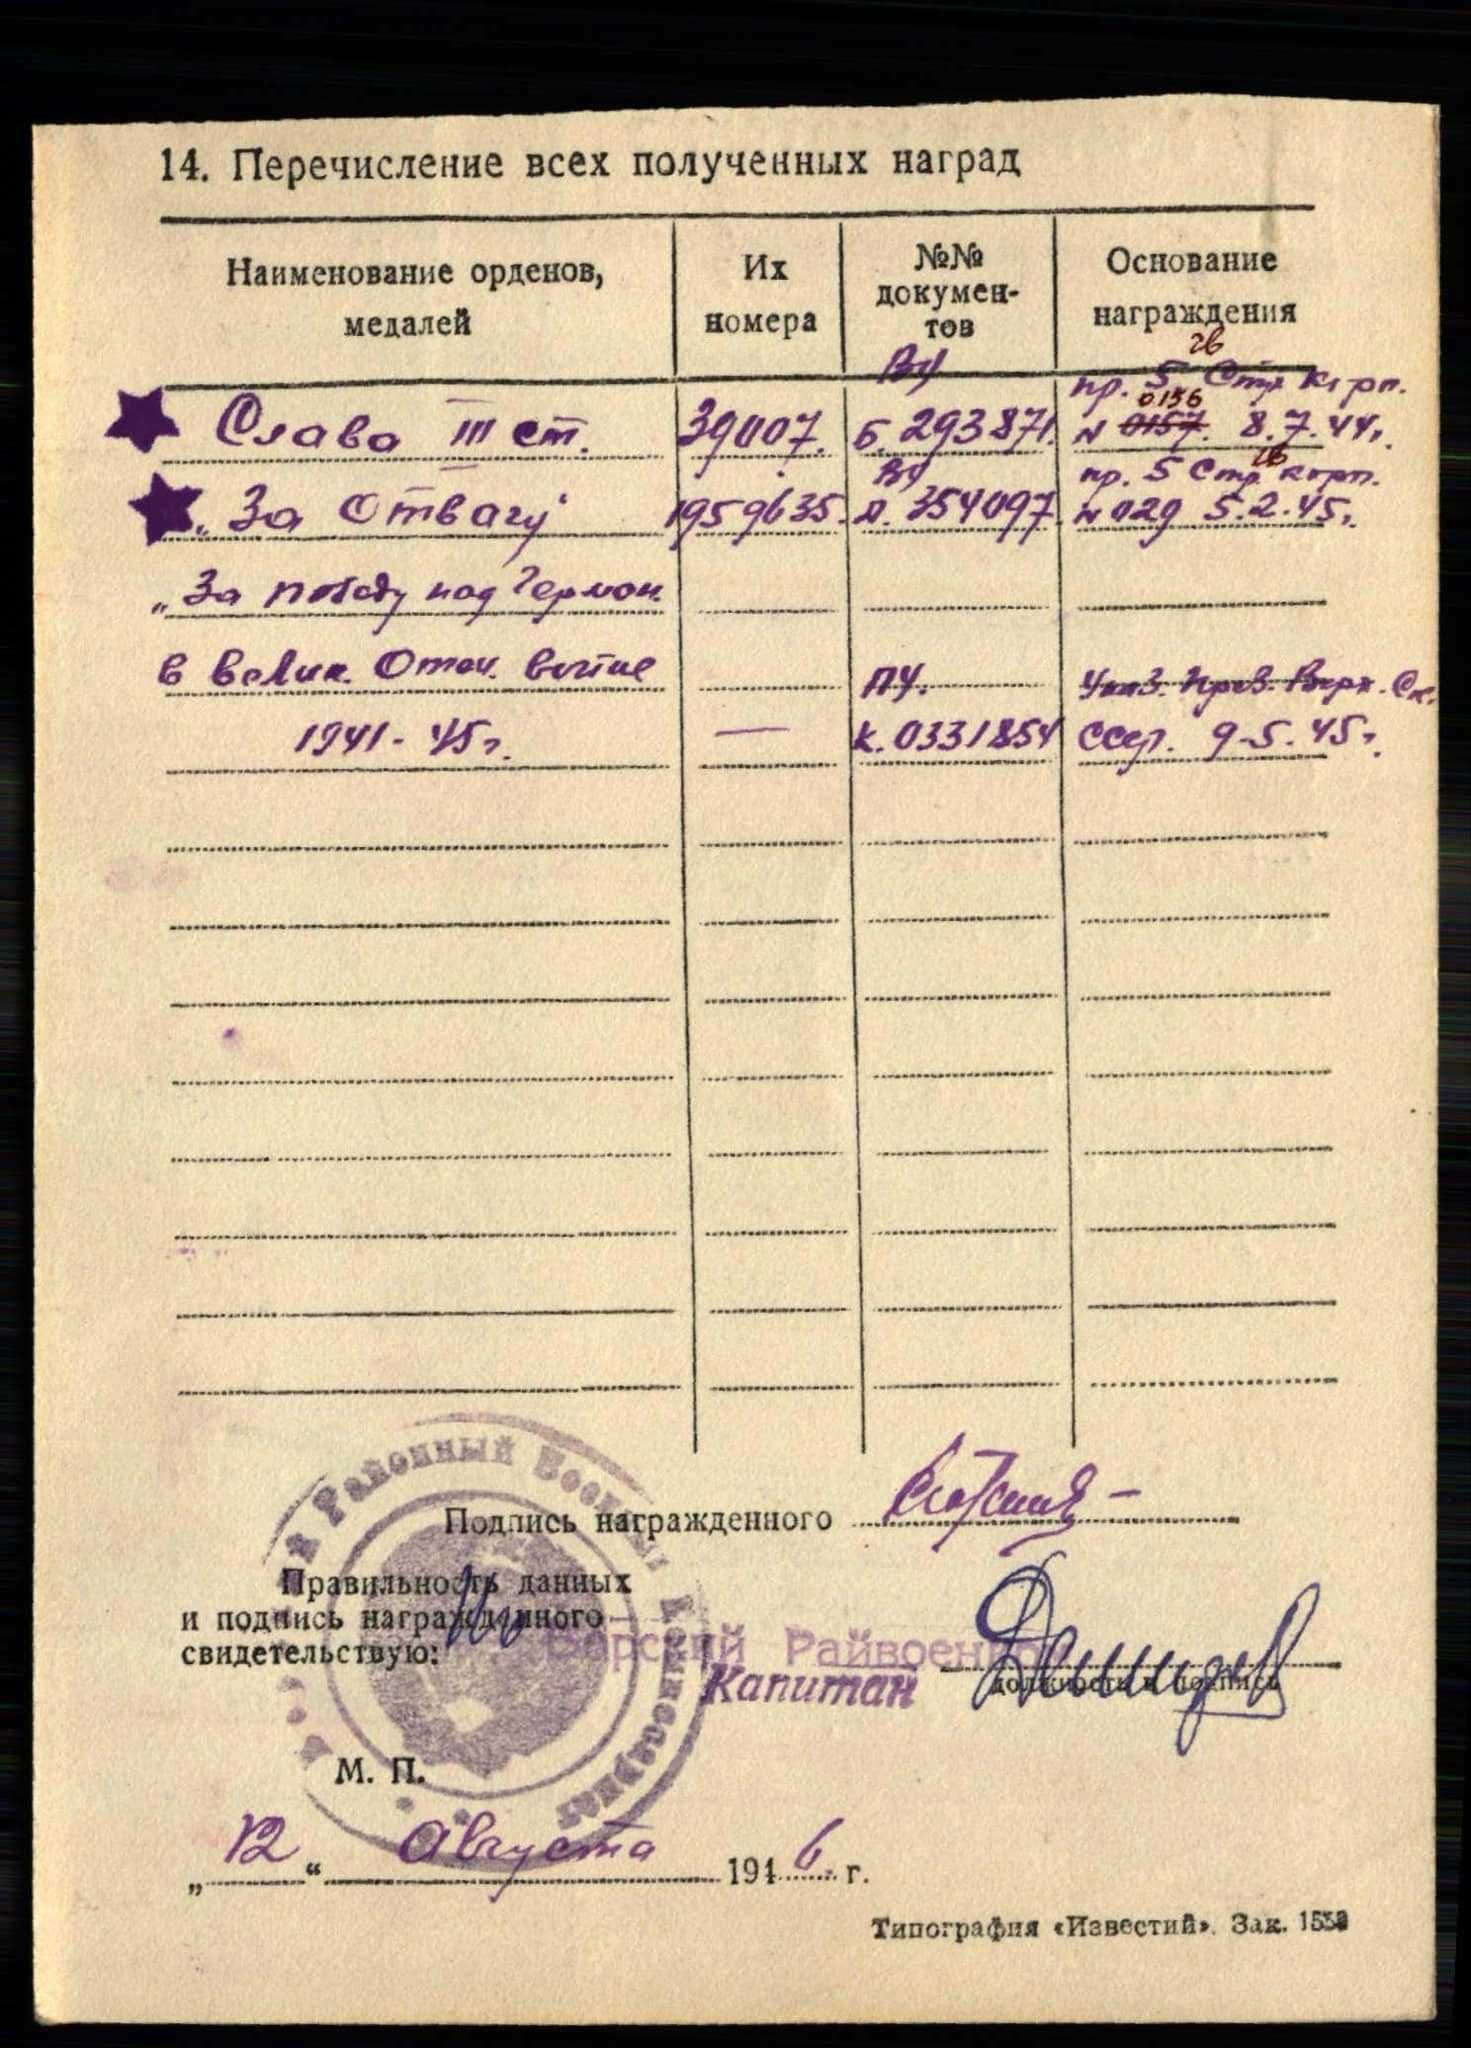 14. Перечисление всех полученных наград
Наименование орденов,
медалей
Их
номера
№№
докумен-
тов
Основание
награждения
Слава III ст.
39007.
ВУ
Б. 293871.
гв
пр. 5 Стр корп.
0156
N 0157. 8.7.44г.
„За Отвагу
1959635.
ВУ
Д. 354097
гв
пр. 5 Стр корп.
N 029 5.2.45г.
„За победу над Герман.
в велик. Отеч. войне
1941-45г.
—
ПУ.
К. 0331854
Указ. През. Верх. Св.
ССР. 9-5.45г.
Подпись награжденного
Правильность данных
и подпись награжденного
свидетельствую:
Борский Райвоенком
Капитан
должность и подпись
Районный Военный Комиссариат
М. П.
„ 12 “ Августа 1946 г.
Типография «Известий». Зак. 1532